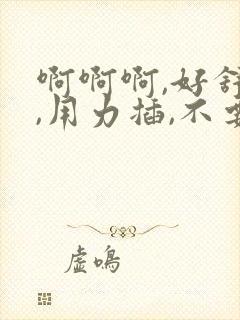 啊啊啊,好舒
,用力插,不要
虚鸣